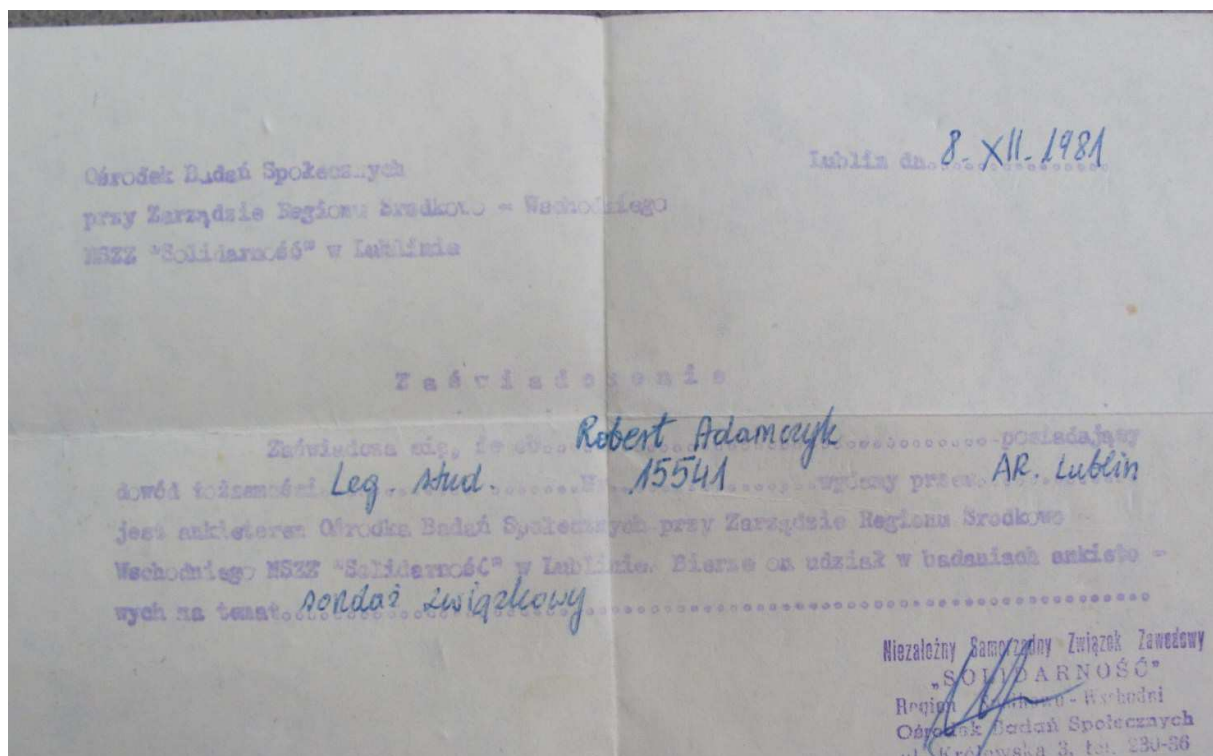 Lublin dn. 8. XII. 1981
Ośrodek Badań Społecznych
przy Zarządzie Regionu Środkowo - Wschodniego
NSZZ "Solidarność" w Lublinie
Zaświadczenie
Zaświadcza się, że ob... Robert Adamczyk ............ posiadający
dowód tożsamości Leg. stud. ....... Nr 15541 ........ wydany przez. AR. Lublin
jest ankieterem Ośrodka Badań Społecznych przy Zarządzie Regionu Środkowo
Wschodniego NSZZ "Solidarność" w Lublinie. Bierze on udział w badaniach ankieto -
wych na temat. sondaż związkowy ........................................
Niezależny Samorządny Związek Zawodowy
„SOLIDARNOŚĆ"
Region Środkowo - Wschodni
Ośrodek Badań Społecznych
ul. Królewska 3, tel. 230-36